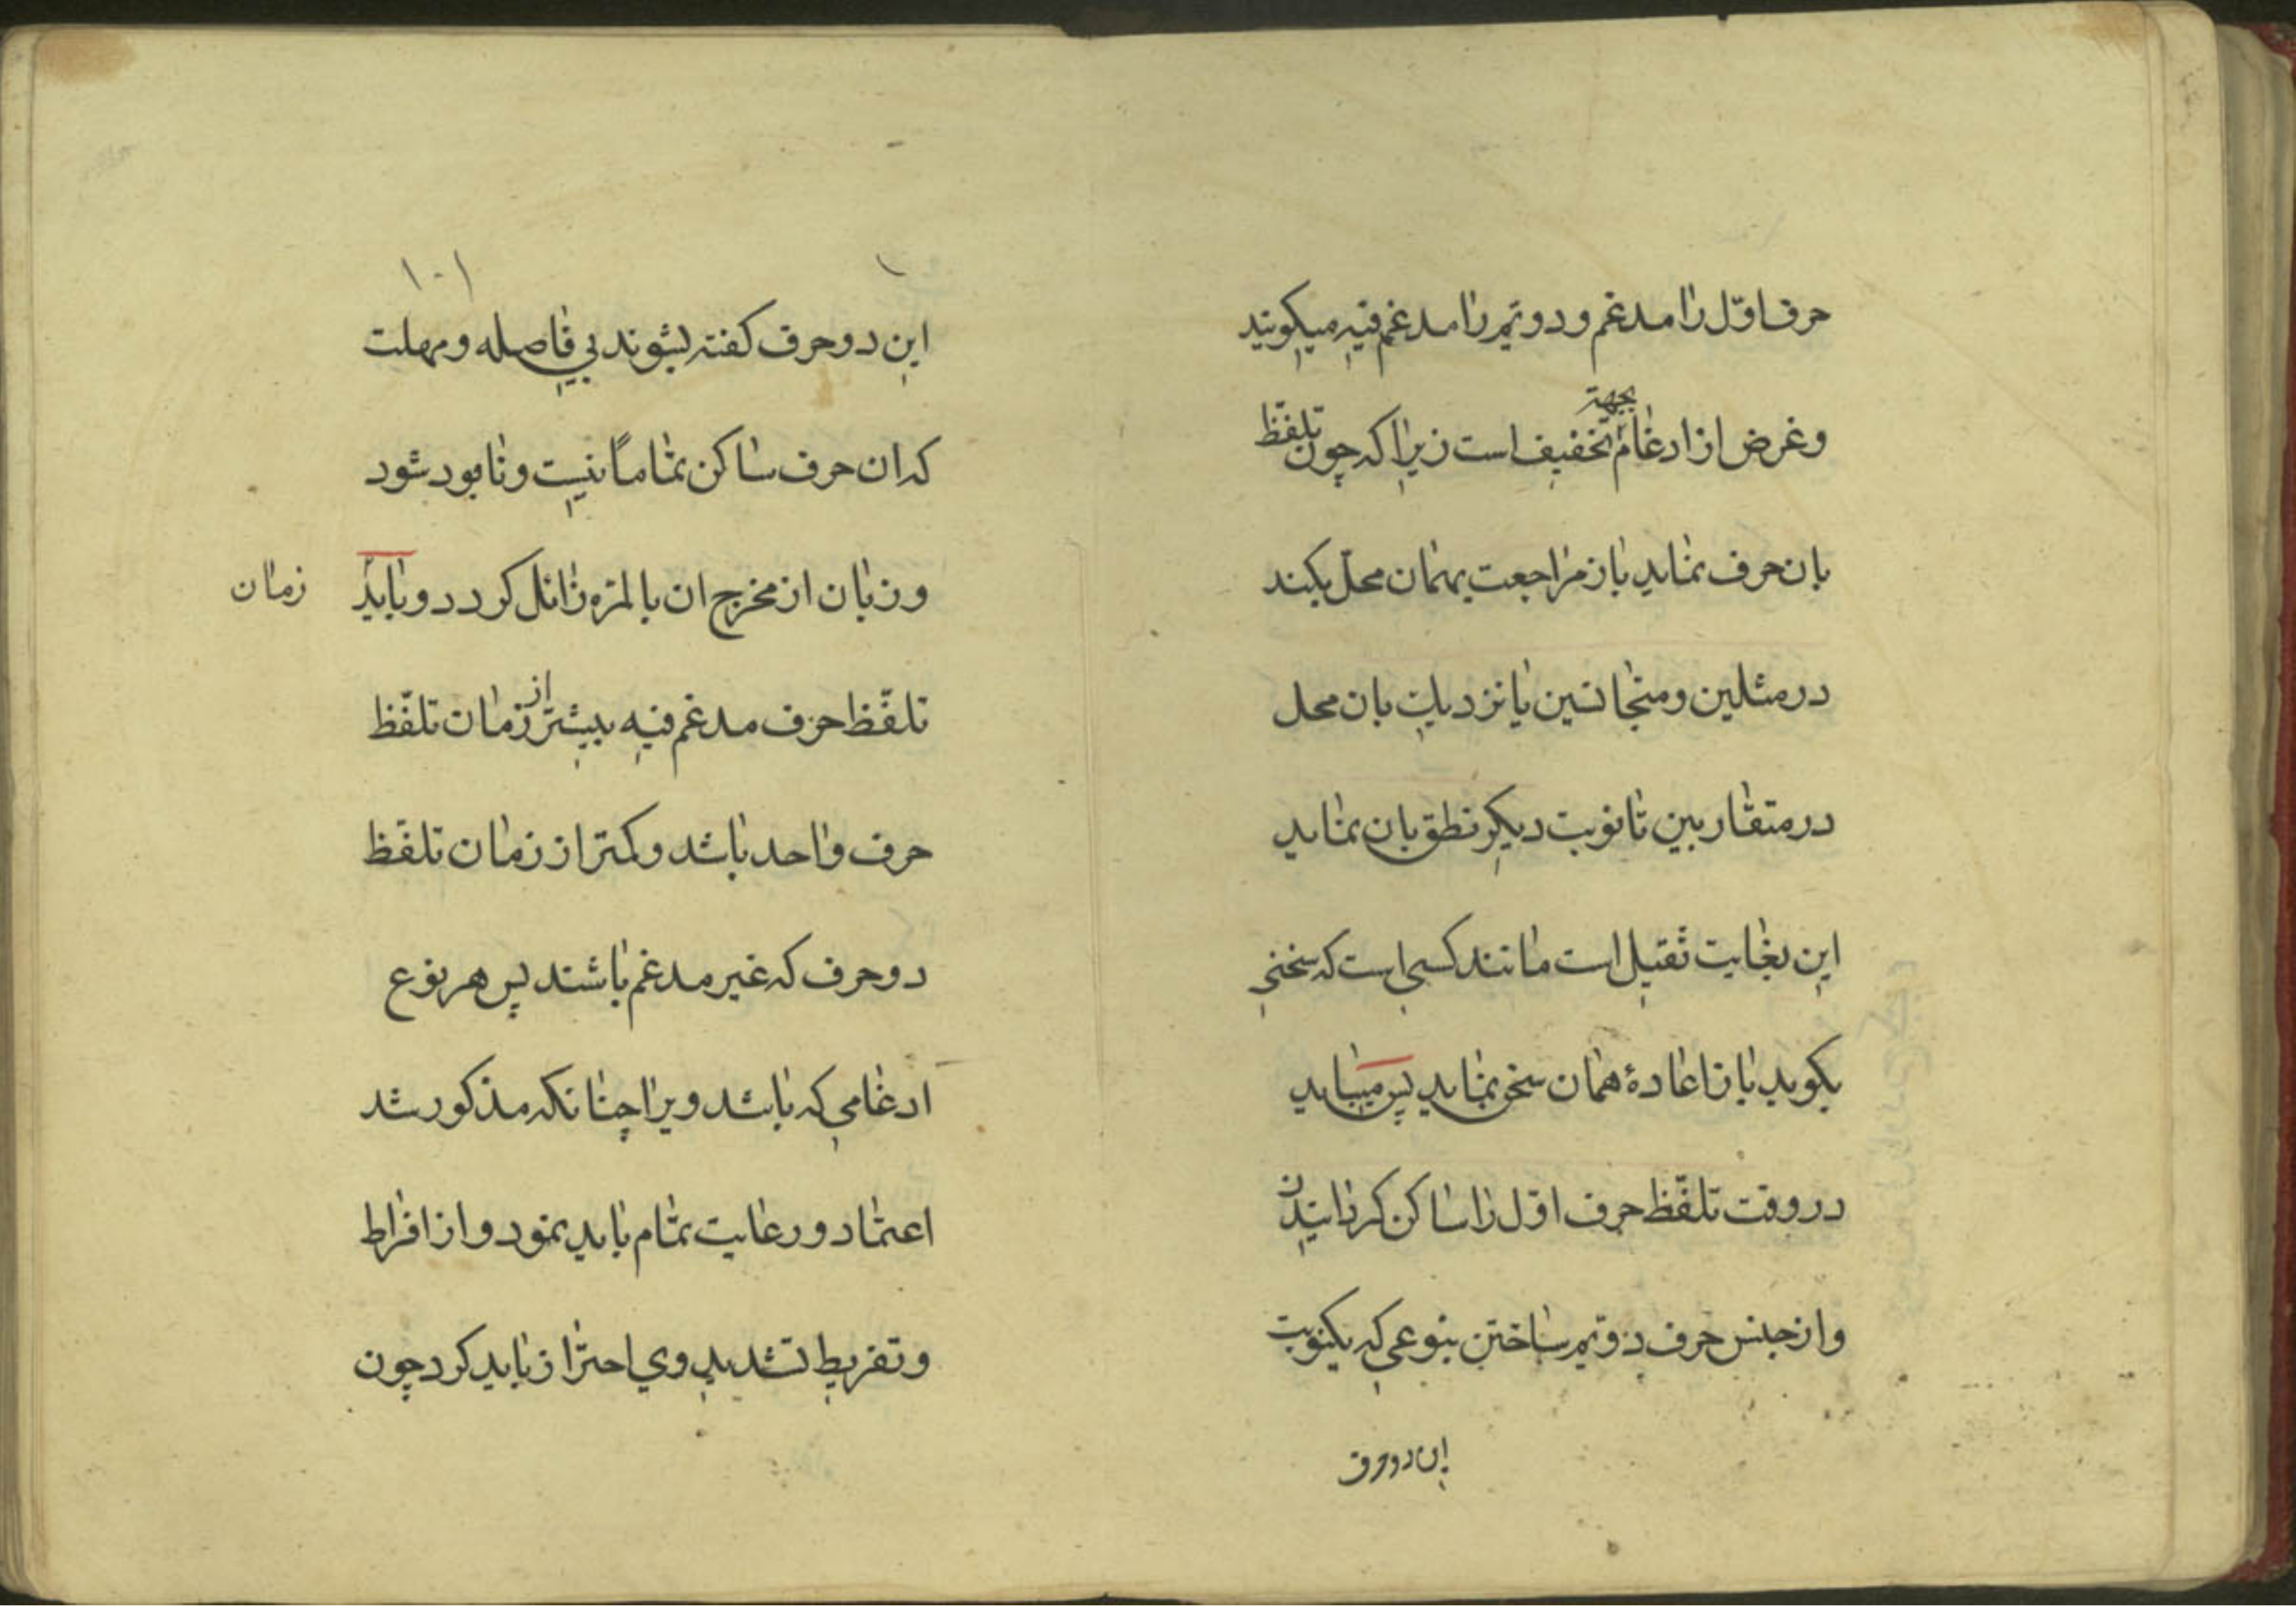 حرف اوّل را مدغم و دویّم را مدغم فیه میکویند
وغرض از ادغام بجهة تخفیف است زیرا که چون تلفّظ
بان حرف نماید باز مراجعت بهمان محلّ بکند
در مثلین و متجانسین یا نزدیك بان محل
در متقاربین تا نوبت دیکر نطق بان نماید
این بغایت ثقیل است مانند کسی است که سخنی
بکوید باز اعادهٔ همان سخن نماید پس میباید
در وقت تلفّظ حرف اوّل را ساکن کردانیدن
و از جنس حرف دویّم ساختن بنوعی که یکنوبت
این دو حرف
۱۰۱
این دو حرف کفته بشوند بی فاصله و مهلت
که ان حرف ساکن تماماً نیست و نابود شود
و زبان از مخرج ان بالمرّه زائل کردد و باید زمان
تلفّظ حرف مدغم فیه بیشتر از زمان تلفّظ
حرف واحد باشد و کمتر از زمان تلفّظ
دو حرف که غیر مدغم باشند پس هر نوع
ادغامی که باشد ویرا چنانکه مذکور شد
اعتماد و رعایت تمام باید نمود و از افراط
و تفریط تشدید وی احتراز باید کرد چون